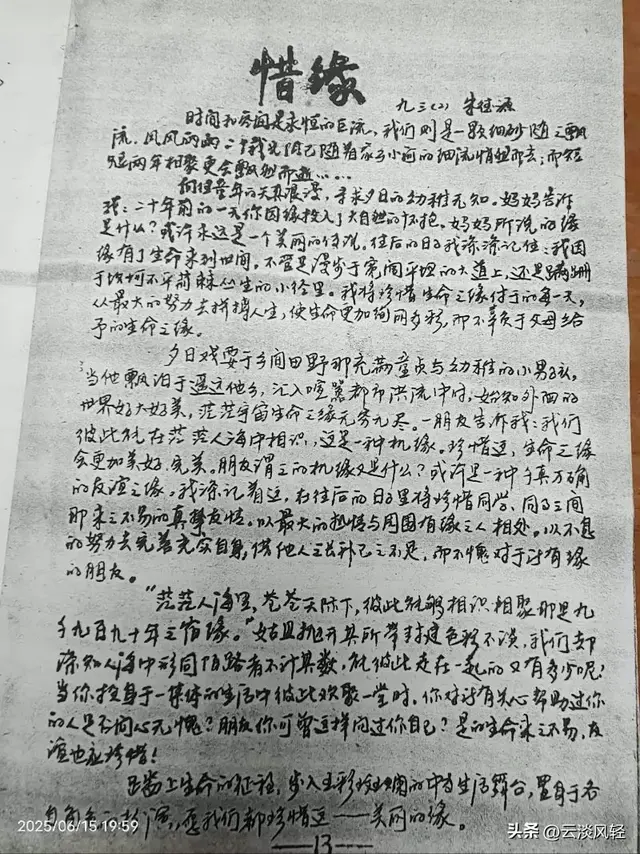 惜缘
九三(2) 朱
时间和空间是永恒的巨流,我们则是一颗细砂随之飘
流.风风雨雨二十载光阴已随着家乡小河的细流悄然而去;而短
短两年相聚更会飘然而逝……
何但童年的天真浪漫,寻求夕日的幼稚无知。妈妈告诉
我:二十年前的一天你因缘投入了大自然的怀抱。妈妈所说的缘
是什么?或许永远是一个美丽的传说,往后的日子我深深记住:我因
缘有了生命来到世间。不管是漫步于宽阔平坦的大道上,还是蹒跚
于坎坷不平荆棘丛生的小径里。我将珍惜生命之缘付于的每一天,
从最大的努力去拼搏人生,使生命更加绚丽多彩,而不辜负于父母给
予的生命之缘。
夕日戏耍于乡间田野那充满童贞与幼稚的小男孩,
当他飘泊于遥远他乡,汇入喧嚣都市洪流中时,始知外面的
世界好大好美,茫茫宇宙生命之缘无穷无尽。一朋友告诉我:我们
彼此能在茫茫人海中相识,这是一种机缘。珍惜这,生命之缘
会更加美好、完美。朋友谓之的机缘又是什么?或许是一种千真万确
的友谊之缘。我深记着这,在往后的日子里将珍惜同学、同乡之间
那来之不易的真挚友情。以最大的热情与周围有缘之人相处。以不息
的努力去完善充实自身,借他人之长补己之不足,而不愧对于所有缘
的朋友。
“茫茫人海里,苍苍天际下,彼此能够相识相聚那是九
千九百九十年之宿缘。”姑且抛开其所带封建色彩不谈,我们却
深知人海中形同陌路者不计其数,能彼此走在一起的又有多少呢!
当你投身于一集体的生活中彼此欢聚一堂时,你对所有关心帮助过你
的人是否问心无愧?朋友你可曾这样问过你自己?是的生命来之不易,友
谊也应珍惜!
踏上生命的征程,步入五彩斑斓的中专生活舞台,置身于各
自角色 演,愿我们都珍惜这——美丽的缘。
—13—
2025/06/15 19:59
头条 @云淡风轻